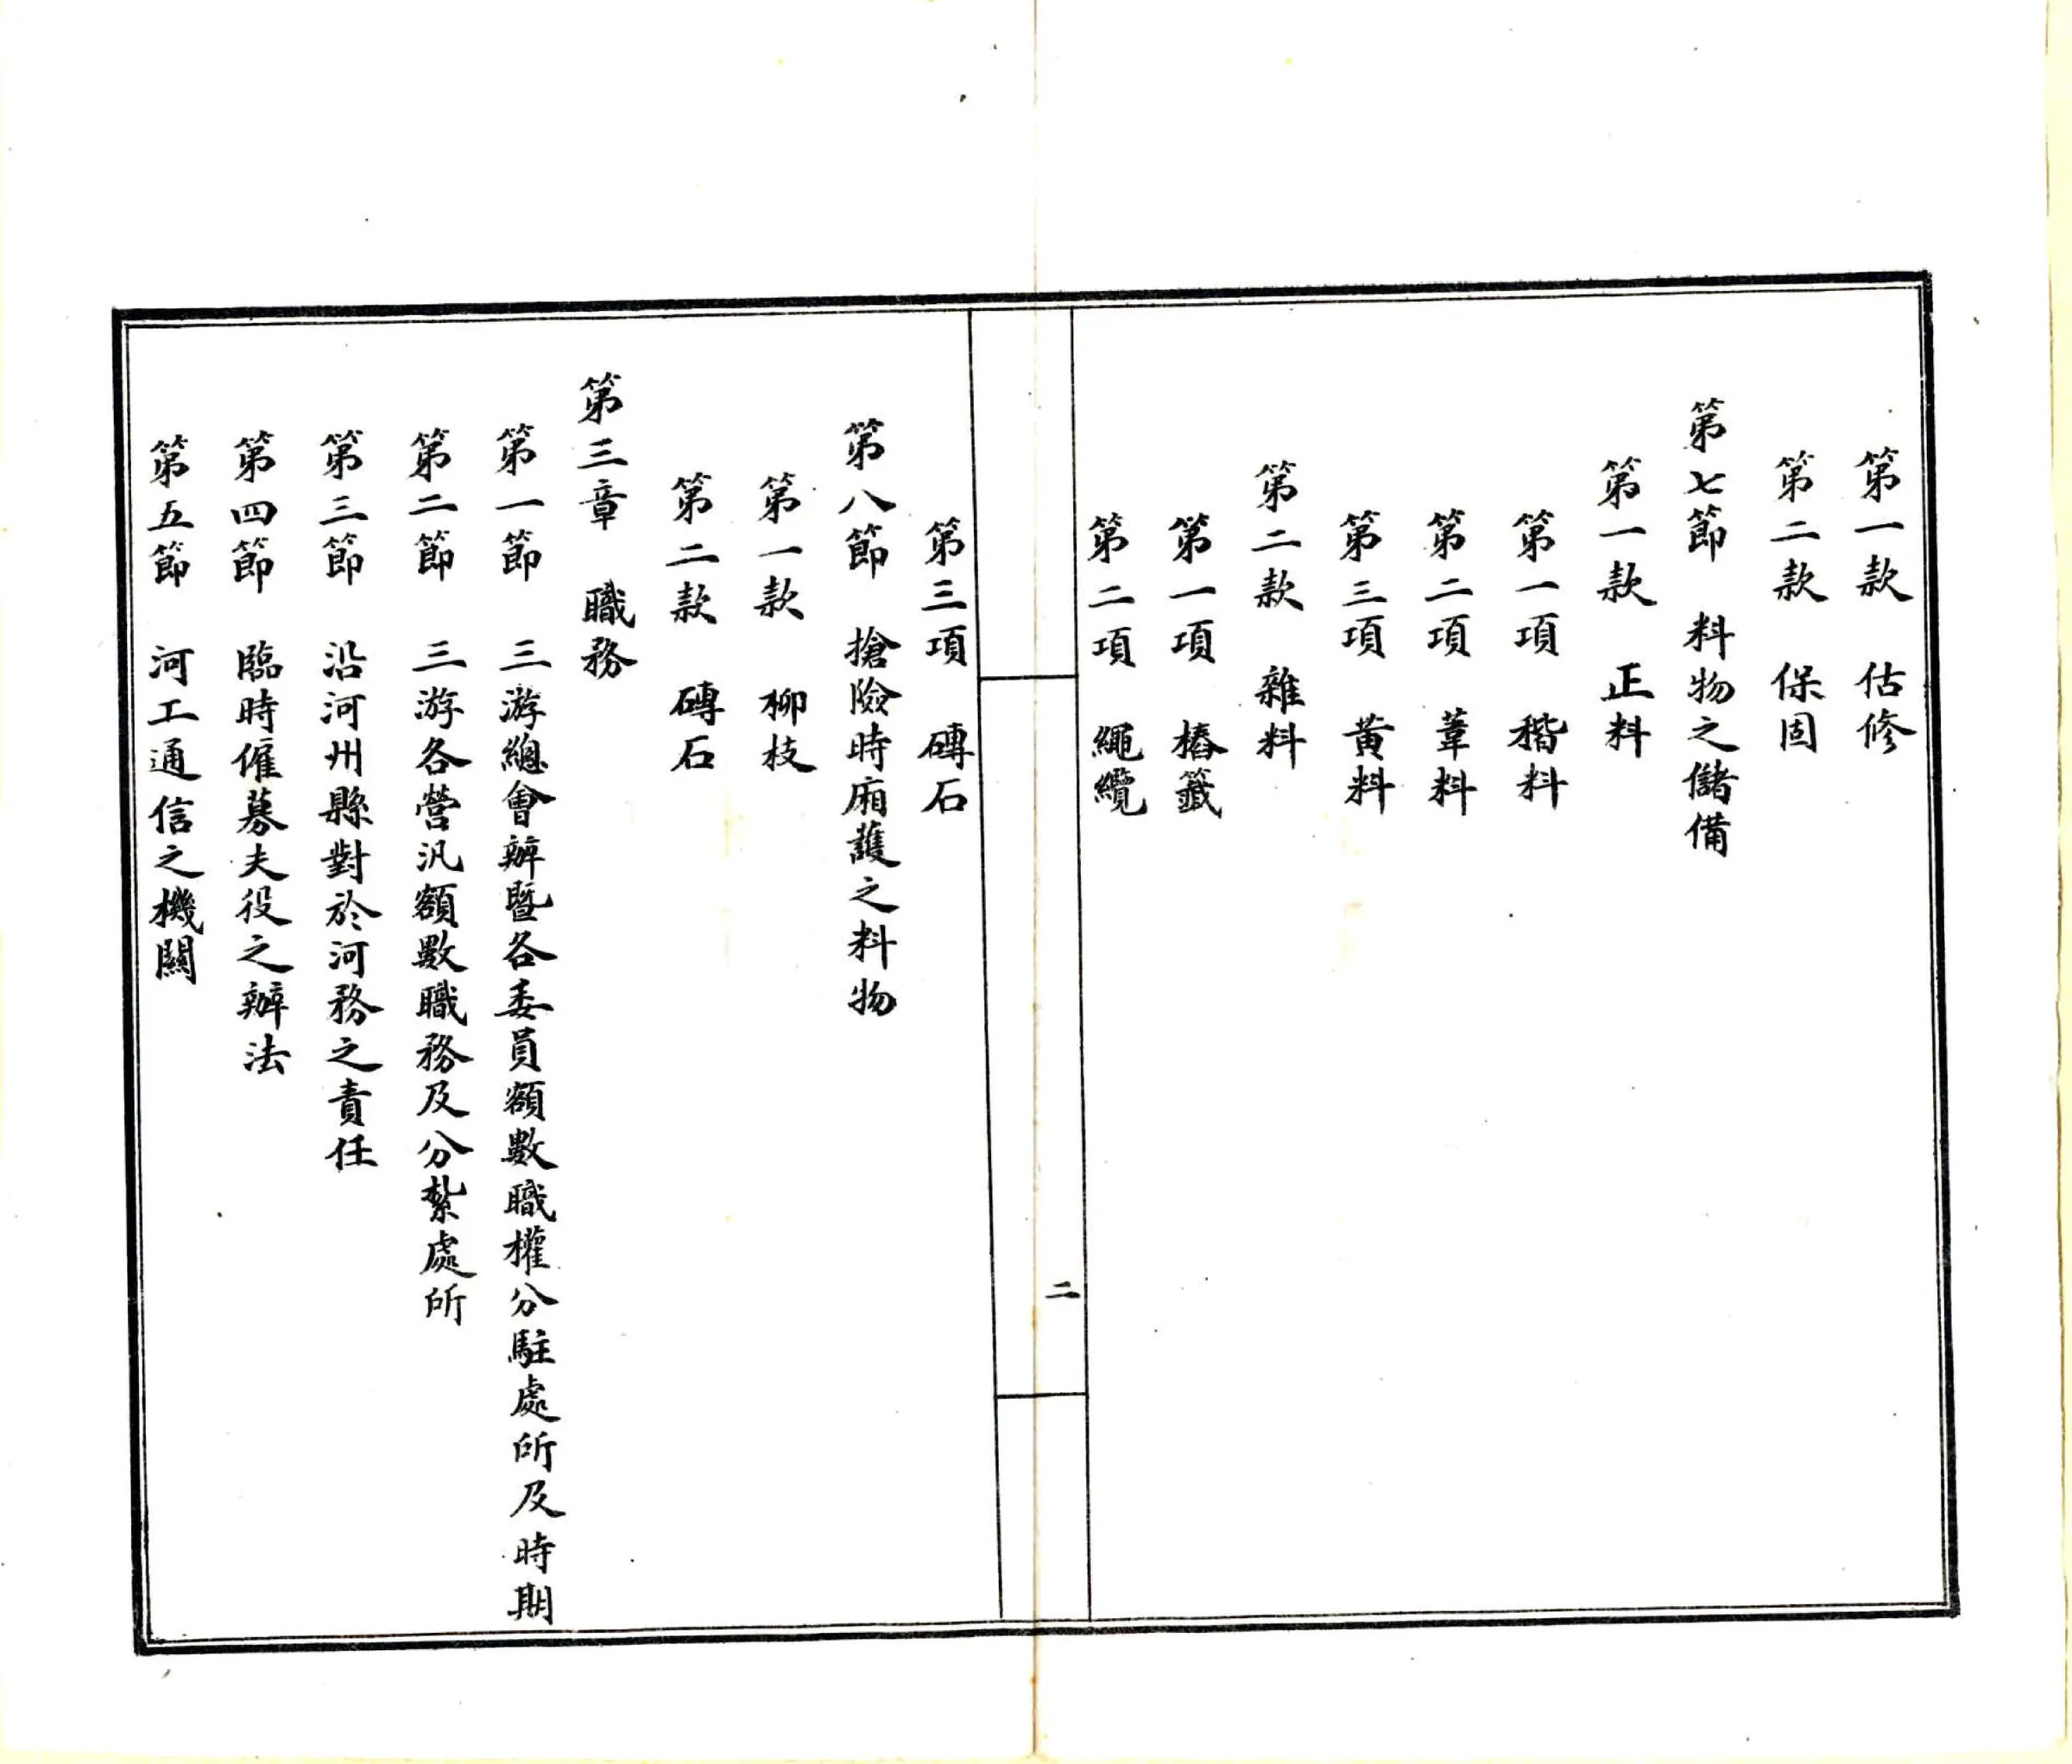 第一款　估修
第二款　保固
第七節　料物之儲備
第一款　正料
第一項　稭料
第二項　葦料
第三項　黃料
第二款　雜料
第一項　樁籤
第二項　繩纜
二
第三項　磚石
第八節　搶險時廂護之料物
第一款　柳枝
第二款　磚石
第三章　職務
第一節　三游總會辦曁各委員額數職權分駐處所及時期
第二節　三游各營汛額數職務及分紮處所
第三節　沿河州縣對於河務之責任
第四節　臨時僱募夫役之辦法
第五節　河工通信之機關